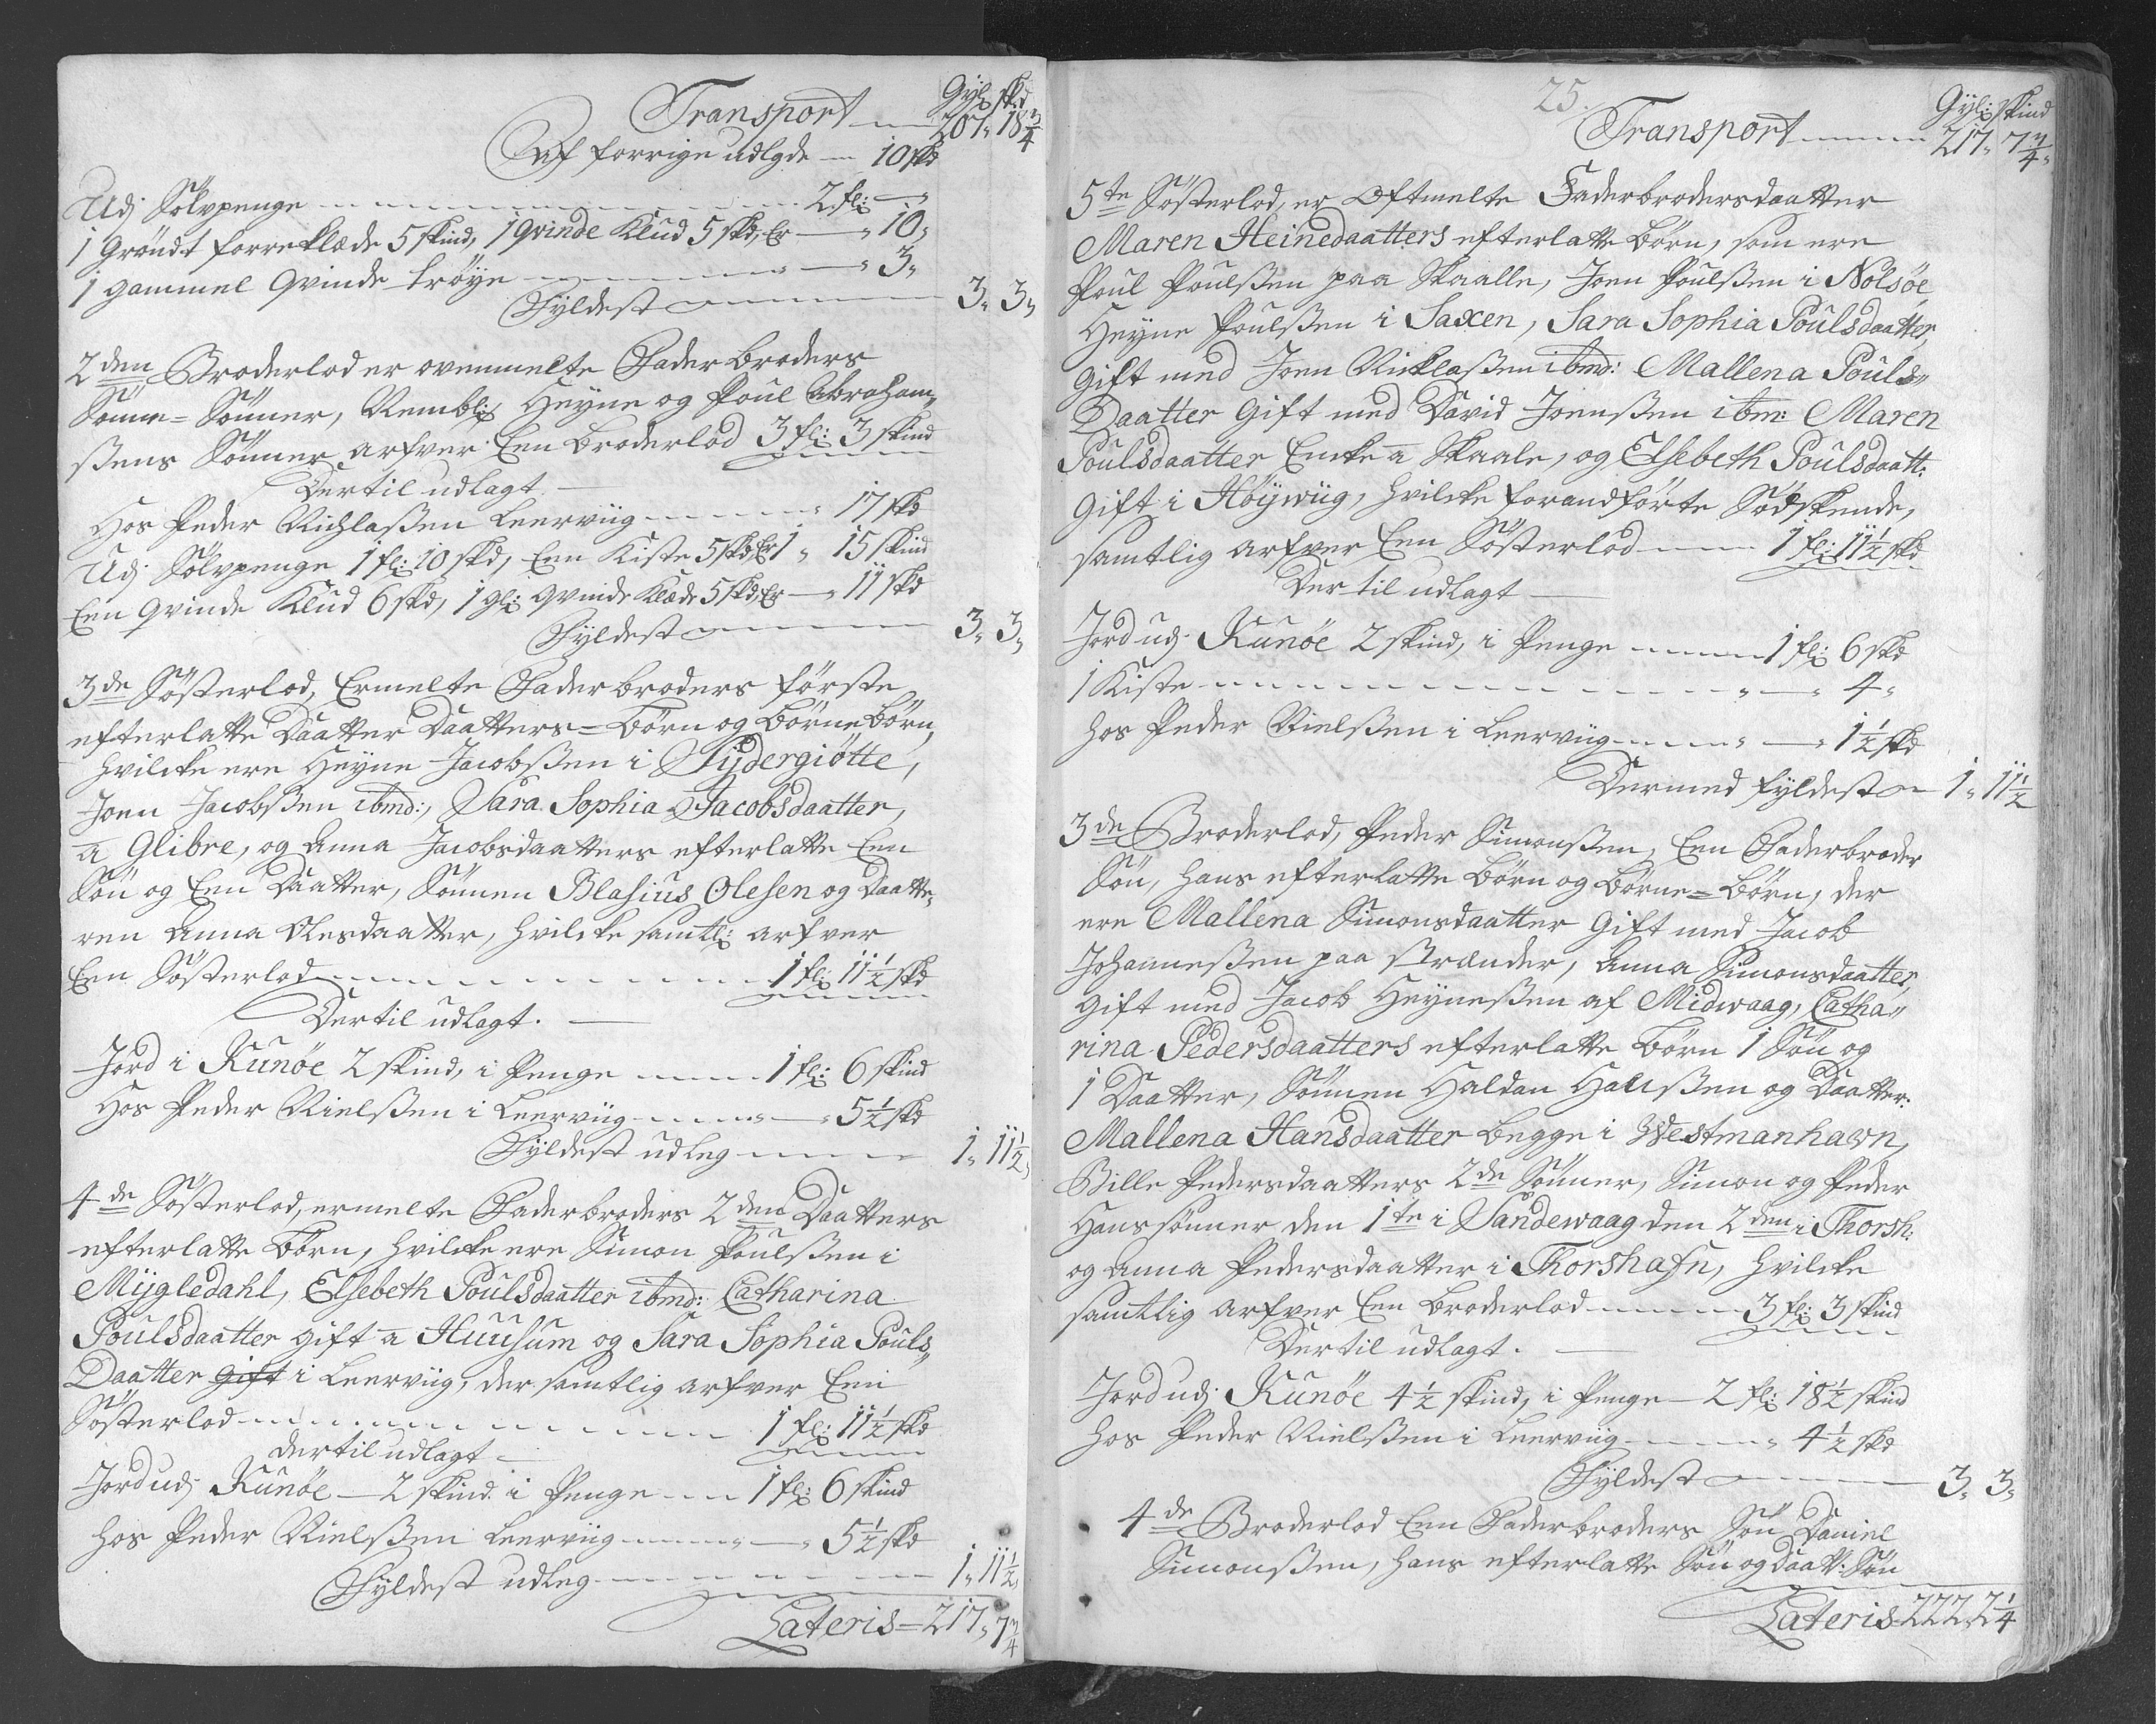 Gyl: skd
Transport — 207, 18 3/4
Af forrige udlgde — 10 skd
Udj Sölvpenge — 2 fl: — „
1 Gröndt forreklæde 5 skind, 1 qvinde Klud 5 skd, Er — „ 10 „
1 gammel qvinde tröye — „ 3 „
Fyldest — 3 „ 3 „
2den Broderlod er ovenmelte Faderbroders
Sönne= Sönner, Nembl: Heyne og Poul Abraham„
ßens Sönner arfver Een Broderlod 3 fl: 3 skind
Dertil udlagt —
Hos Peder Nichlaßen Leerviig — „ 17 skd
Udj Sölvpenge 1 fl: 10 skd, Een Kiste 5 skd, Er 1 „ 15 skind
Een qvinde Klud 6 skd, 1 gl: qvinde Klæde 5 skd, Er — „ 11 skd
Fyldest — 3 „ 3 „
3de Sösterlod, Ermelte Faderbroders förste
efterlatte Daatter Daatters= Börn og Börne Börn,
hvilcke ere Heyne Jacobßen i Sydergiötte,
Joen Jacobßen ibmd:, Sara Sophia Jacobsdaatter,
a Glibre, og Anna Jacobsdaatters efterlatte Een
Sön og Een Daatter, Sönnen Blasius Olesen og Daatte„
ren Anna Olesdaatter, hvilcke samtl: arfver
Een Sösterlod — 1 fl: 11 1/2 skd
Dertil udlagt. —
Jord i Kunöe 2 skind, i Penge — 1 fl: 6 skind
Hos Peder Nielßen i Leerviig — „ — „ 5 1/2 skd
Fyldest udleg — 1 „ 11 1/2 „
4de Sösterlod, ermelte Faderbroders 2den Daatters
efterlatte Börn, hvilcke ere Simon Poulßen i
Mygledahl, Elsebeth Poulsdaatter ibmd: Catharina
Poulsdaatter gift a Huusum og Sara Sophia Pouls„
Daatter gift i Leerviig, der samtlig arfver Een
Sösterlod — 1 fl: 11 1/2 skd
dertil udlagt —
Jord udj Kunöe — 2 skind i Penge — 1 fl: 6 skind
hos Peder Nielßen Leerviig — „ — „ 5 1/2 skd
Fyldest udleg — 1 „ 11 1/2 „
Lateris = 217, 7 3/4
25.
Gyl: skind
Transport — 217 „ 7 3/4 „
5te Sösterlod, er Oftmelte Faderbrodersdaatter
Maren Heinedaatters efterlatte Börn, som ere
Poul Poulßen paa Skaalle, Joen Poulßen i Nolsöe
Heyne Poulßen i Saxen, Sara Sophia Poulsdaatter,
gift med Joen Nicklaßen ibmd: Mallena Pouls„
Daatter Gift med David Joenßen ibm: Maren
Poulsdaatter Encke a Skaale, og Elsebeth Poulsdaatt:
gift i Höywiig, hvilcke forandförte Södskende,
samtlig arfver Een Sösterlod — 1 fl: 11 1/2 skd
Der til udlagt —
Jord udj Kunöe 2 skind, i Penge — 1 fl: 6 skd
1 Kiste — „ — „ 4 „
hos Peder Nielßen i Leerviig — „ — „ 1 1/2 skd
Dermed fyldest — 1 „ 11 1/2
3de Broderlod, Peder Simonßen, Een Faderbroder
Sön, hans efterlatte Börn og Börne= Börn, der
ere Mallena Simonsdaatter Gift med Jacob
Johanneßen paa Strænder, Anna Simonsdaatter,
gift med Jacob Heyneßen af Midwaag, Catha„
rina Pedersdaatters efterlatte Börn 1 Sön og
1 Daatter, Sönnen Haldan Hansßen og Daatter:
Mallena Hansdaatter begge i Westmanhawn,
Bille Pedersdaatters 2de Sönner, Simon og Peder
Hanssönner den 1te i Sandewaag den 2den i Thorsh:
og Anna Pedersdaatter i Thorshafn, hvilcke
samtlig arfver Een Broderlod — 3 fl: 3 skind
Dertil udlagt. —
Jord udj Kunöe 4 1/2 skind, i Penge — 2 fl: 18 1/2 skind
hos Peder Nielßen i Leerviig — „ 4 1/2 skd
Fyldest — 3 „ 3 „
4de Broderlod Een Faderbroders Sön Daniel
Simonßen, hans efterlatte Sön og Daatt: Sön
Lateris 222, 2 1/4